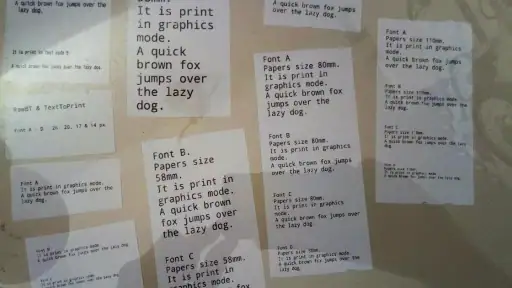 A quick brown fox jumps over the
lazy dog.
It is print in text mode B
A quick brown fox jumps over the lazy dog.
RawBT & TextToPrint
Font A - D 26, 20, 17 & 14 px.
Font A
It is print in graphics mode.
A quick brown fox jumps over the
lazy dog.
Font B
It is print in graphics mode.
A quick brown fox jumps over the lazy dog.
Font C
It is print in graphics mode.
A quick brown fox jumps over the lazy dog.
It is print
in graphics
mode.
A quick
brown fox
jumps over
the lazy
dog.
Font B.
Papers size
58mm.
It is print in
graphics mode.
A quick brown
fox jumps over
the lazy dog.
Font C
Papers size 58mm.
It is print in
graphics mode.
A quick brown fox
A quick brown fox jumps
over the lazy dog.
Font A
Papers size 80mm.
It is print in
graphics mode.
A quick brown fox
jumps over the lazy
dog.
Font B
Papers size 80mm.
It is print in graphics
mode.
A quick brown fox jumps
over the lazy dog.
Font C
Papers size 80mm.
It is print in graphics mode.
A quick brown fox jumps over
the lazy dog.
Font D
Papers size 80mm.
It is print in graphics mode.
A quick brown fox jumps over the
lazy dog.
Font A
Papers size 110mm.
It is print in graphics
mode.
A quick brown fox jumps
over the lazy dog.
Font B
Papers size 110mm.
It is print in graphics mode.
A quick brown fox jumps over the
lazy dog.
Font C
Papers size 110mm.
It is print in graphics mode.
A quick brown fox jumps over the lazy
dog.
It is print in graphics mode.
A quick brown fox jumps over the lazy dog.